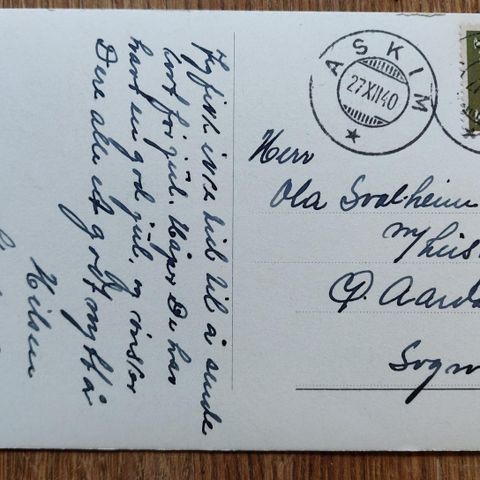 Jeg fikk ikke tid til å sende
kort før jul. Håper De har
hatt en god jul, og ønsker
Dere alle et godt nytt å
Hilsen
ASKIM
27XII40
Herr
Ola Svalheim
m/
Aarda
Sogn